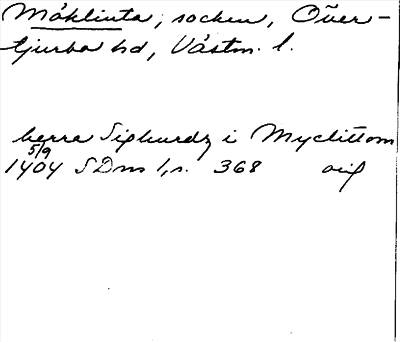 Möklinta, socken, Över-
tjurbo hd, Västm. l.
herra Sighurdz i Myclittom
5/9
1404 SDns 1, s. 368 orig